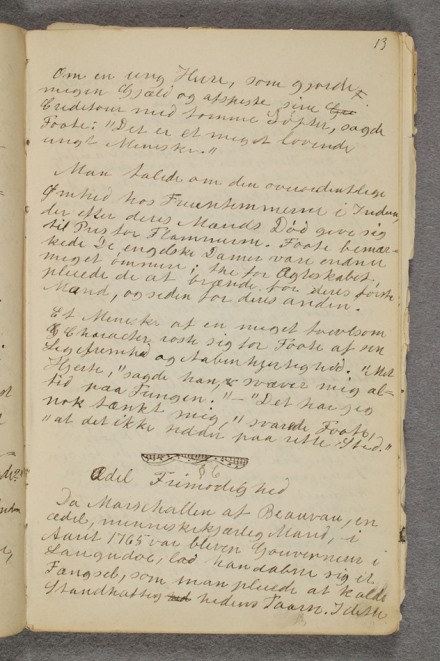 13
Om en ung Herre, som gjorde
megen Gjæld og afspiste sine
Creditorer med tomme Løfter, sagde
Foote: "Det er et meget lovende
ungt Menneske."
Man talede om den overordentlige
Ømhed hos Fruentimmerne i Indien,
der efter deres Mænds Død give sig
til Priis for Flammerne. Foote bemær-
kede De engelske Damer vare endnu
meget ømmere; thi før Ægteskabet
pleiede de at brænde for deres første
Mand, og siden for deres anden.
Et Menneske af en meget tvivlsom
Charakter roste sig for Foote af sin
Ligefremhed og aabenhjertighed. "Mit
Hjerte," sagde han, svæver mig al-
tid paa Tungen." — "Det har jeg
nok tænkt mig," svarede Foote,
"at det ikke sidder paa rette Sted."
66
Ædel Frimodighed
Da Marschallen af Beauvau, en
ædel, menneskekjærlig Mand, i
Aaret 1765 var bleven Gouverneur i
Langudoc, lod han aabne sig et
Fængsel, som man pleiede at kalde
Standhaftig hedens Taarn. I dette